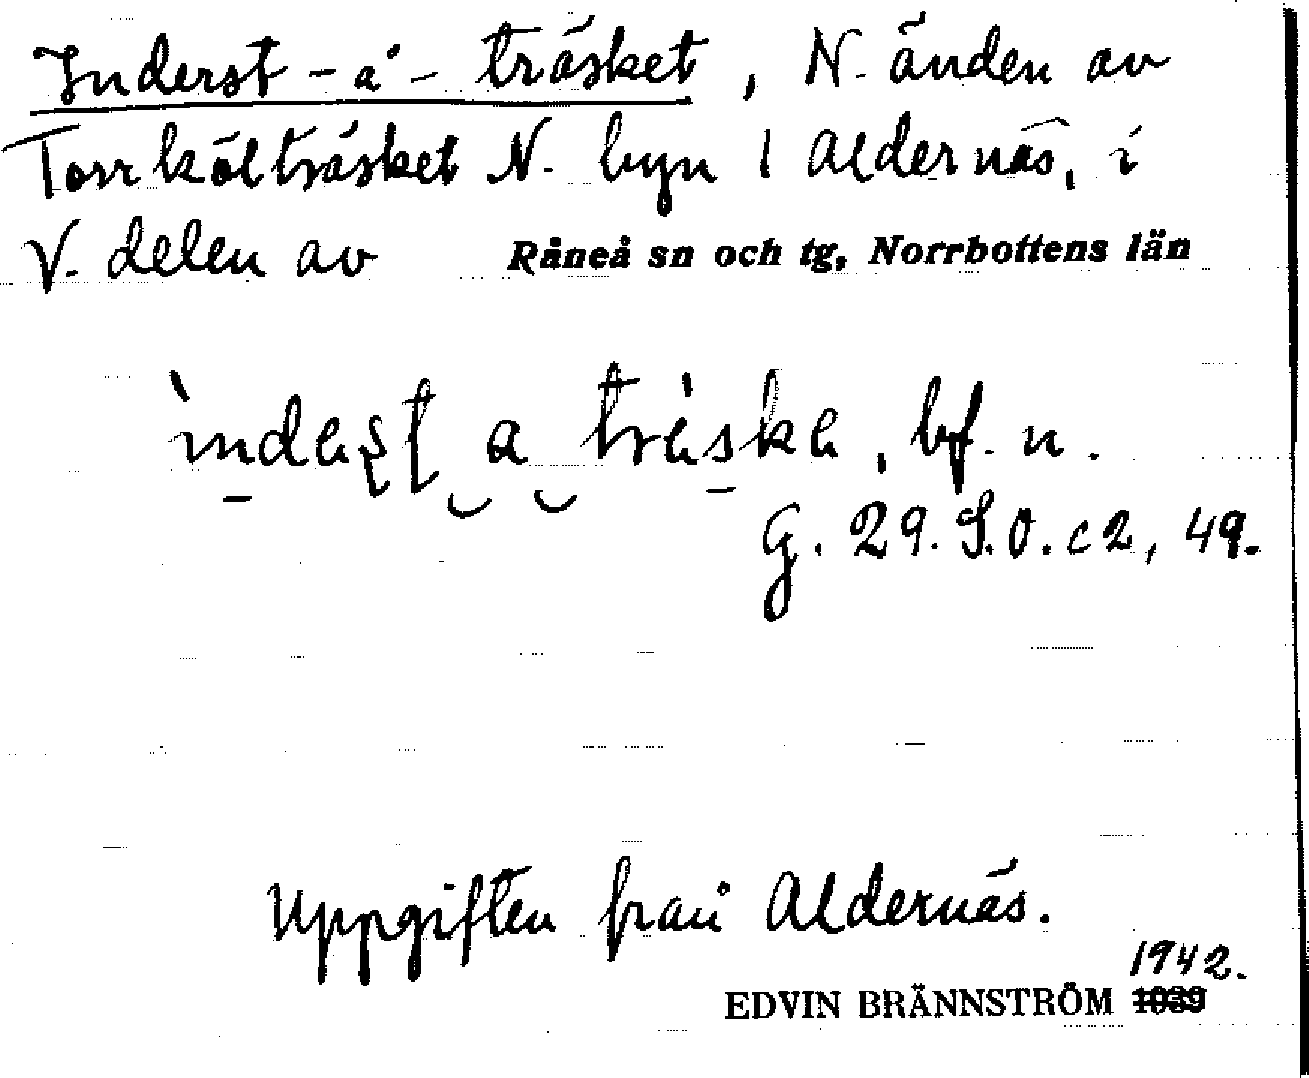 Inderst-å-träsket, N. änden av
Torrkölträsket N. byn 1 Aldernäs, i
V. delen av Råneå sn och tg, Norrbottens län
a träska, bf. n.
G. 29. S.O. c2, 49.
Uppgiften från Aldernäs.
1942.
EDVIN BRÄNNSTRÖM 1939